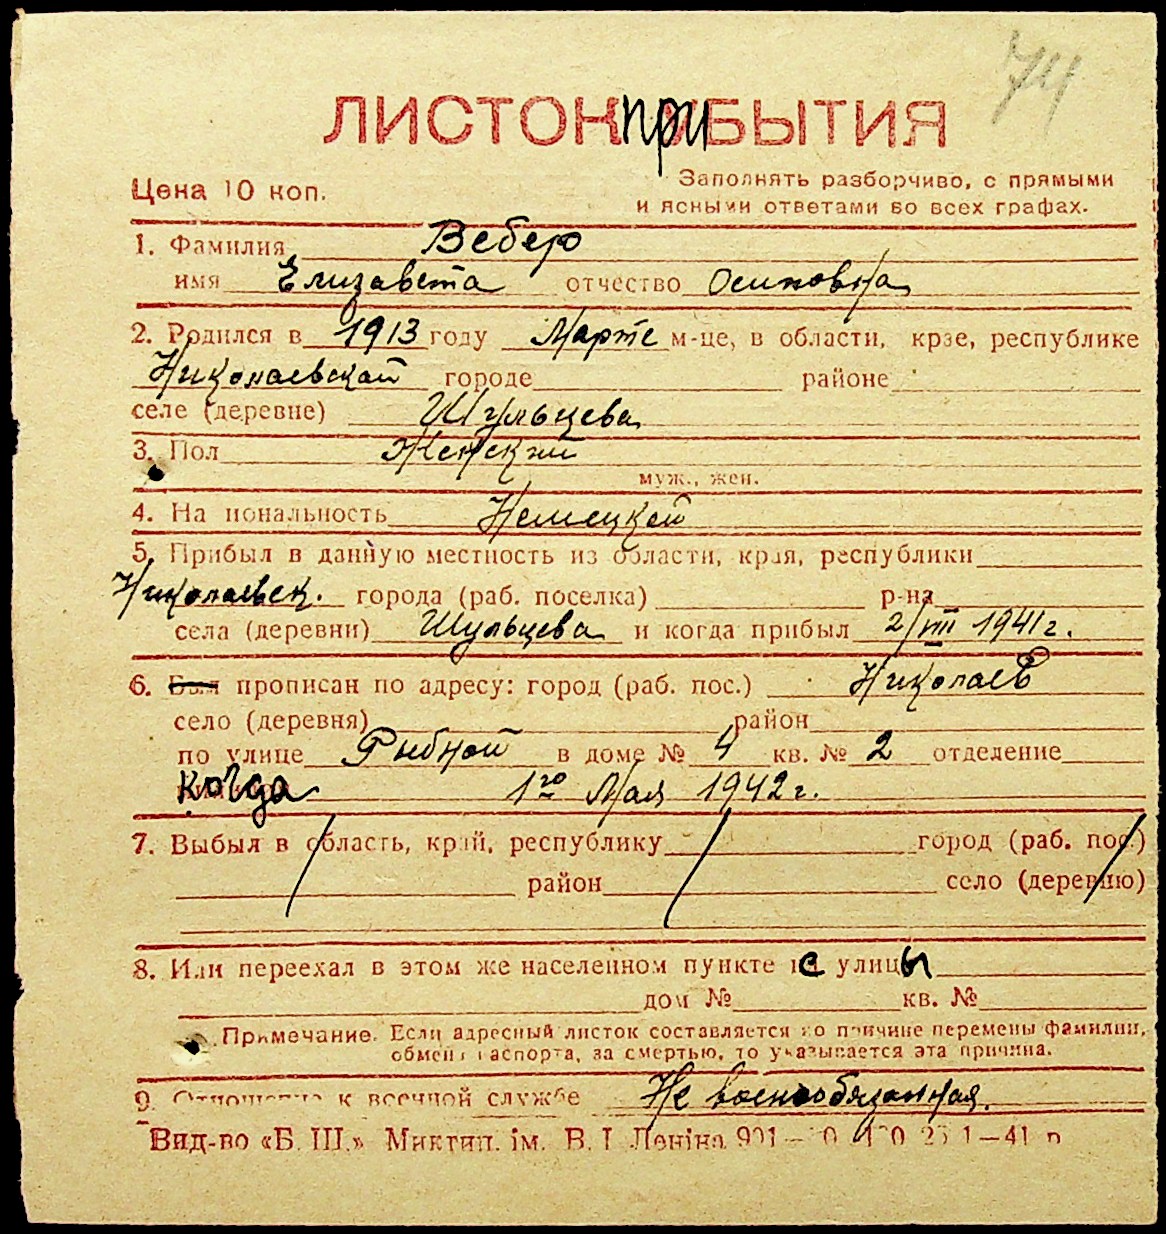 74
ЛИСТОК при БЫТИЯ
Цена 10 коп.
Заполнять разборчиво, с прямыми
и ясными ответами во всех графах.
1. Фамилия Вебер
имя Елизавета отчество Осиповна
2. Родился в 1913 году Марте м-це, в области, крае, республике
Николаевской городе районе
селе (деревне) Шульцева
3. Пол Женский
муж., жен.
4. Национальность Немецкой
5. Прибыл в данную местность из области, края, республики
Николаевск. города (раб. поселка) р-на
села (деревни) Шульцева и когда прибыл 2/VIII 1941 г.
6. Был прописан по адресу: город (раб. пос.) Николаев
село (деревня) район
по улице Рыбной в доме № 4 кв. № 2 отделение
когда 1го Мая 1942 г.
7. Выбыл в область, край, республику город (раб. пос.)
район село (деревню)
8. Или переехал в этом же населенном пункте с улицы
дом № кв. №
Примечание. Если адресный листок составляется по причине перемены фамилии,
обмена паспорта, за смертью, то указывается эта причина.
9. Отношение к военной службе Не военнообязанная.
Вид-во «Б. Ш.» Миктип. ім. В. І. Леніна